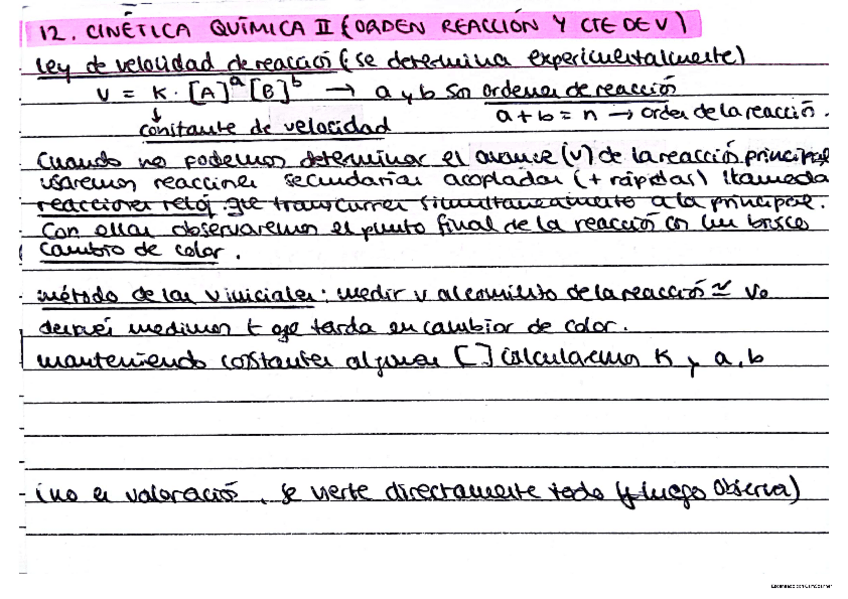 12. CINÉTICA QUÍMICA II (ORDEN REACCIÓN Y CTE DE V)
Ley de velocidad de reacción (se determina experimentalmente)
V = K · [A]^a [B]^b → a y b son ordenes de reacción
a + b = n → orden de la reacción.
↓
constante de velocidad
Cuando no podemos determinar el avance (v) de la reacción principal
usaremos reacciones secundarias acopladas (+ rápidas) llamada
reacciones reloj que transcurren simultaneamente a la principal.
Con ellas observaremos el punto final de la reacción con un brusco
cambio de color.
método de las v iniciales: medir v al comienzo de la reacción ≃ V₀
después medimos t que tarda en cambiar de color.
manteniendo constantes algunas [ ] calcularemos K y a, b
(no es valoración, se vierte directamente todo y luego observa)